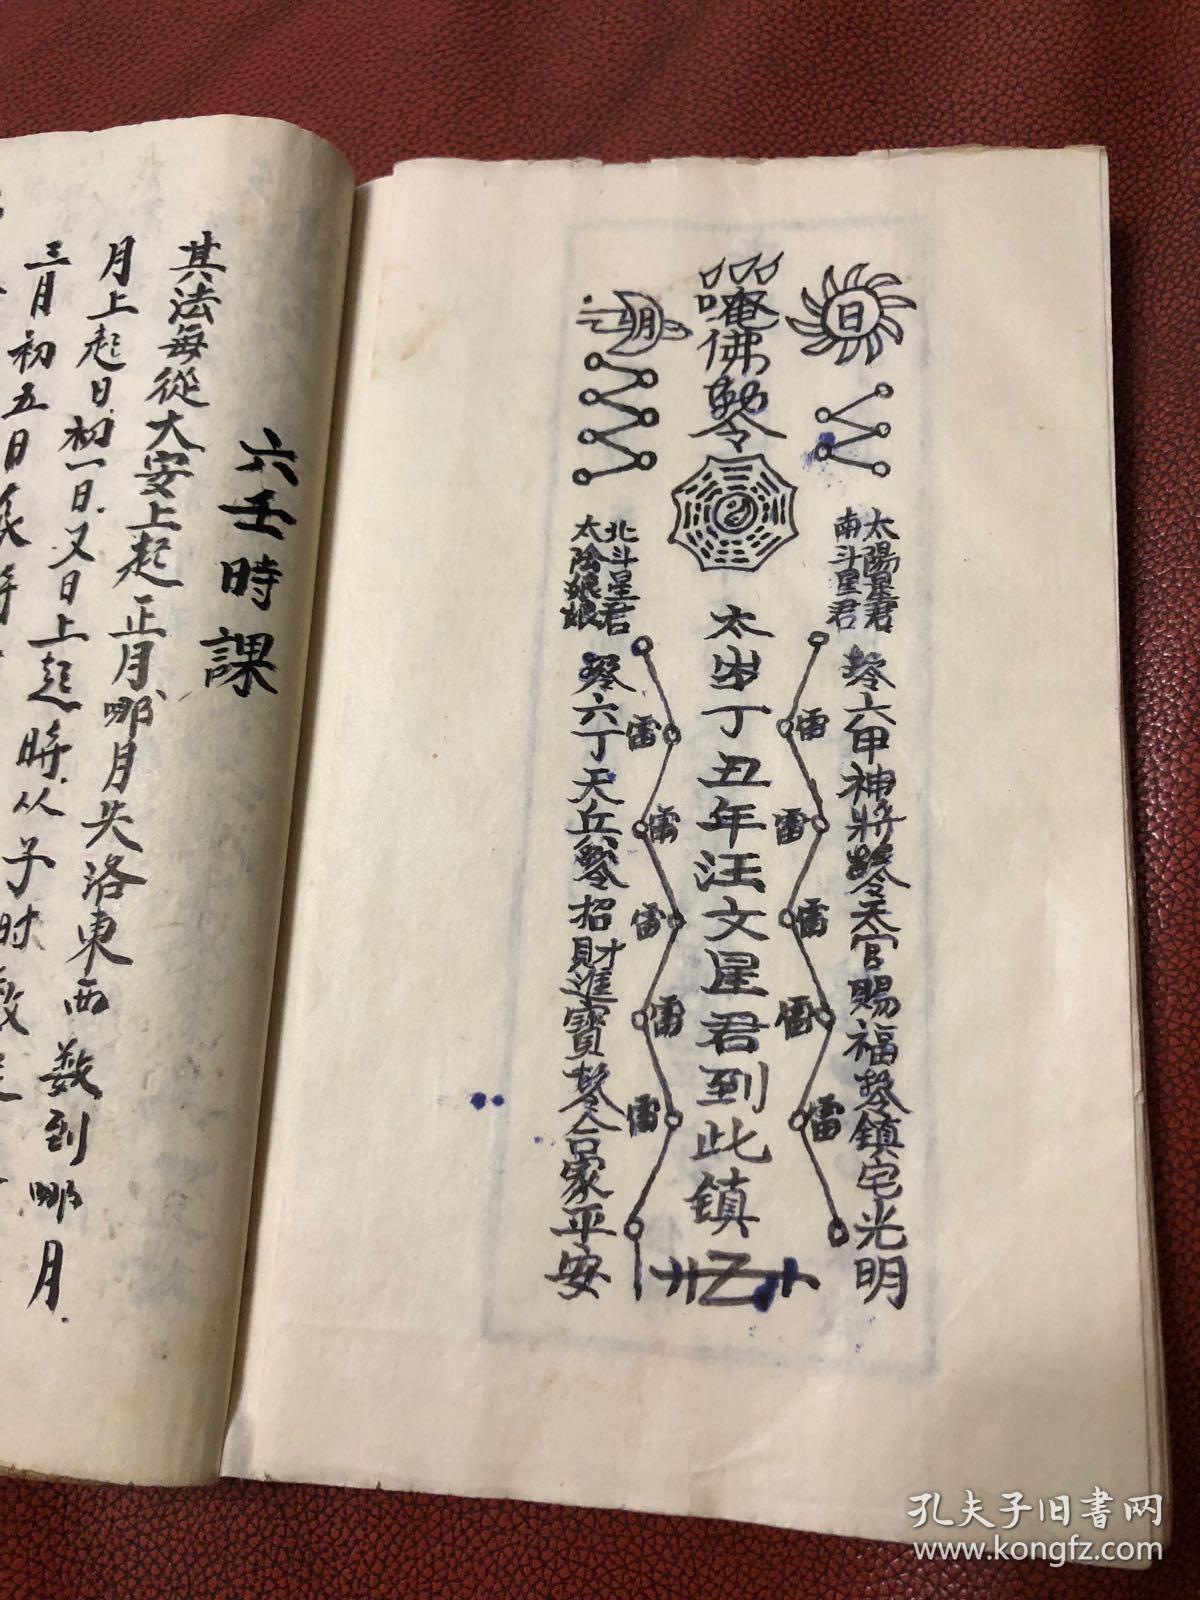 日
唵佛勅令
月
太陽星君
南斗星君
北斗星君
太陰娘娘
勅令六甲神將勅令天官賜福勅令鎮宅光明
雷
雷
雷
雷
雷
太岁丁丑年汪文星君到此鎮
雷
雷
雷
雷
雷
勅令六丁天兵勅令招財進寶勅令合家平安
六壬時課
其法每從大安上起正月哪月失洛東西数到哪月
月上起日初一日.又日上起時.从子时数
三月初五日
孔夫子旧書网
www.kongfz.com